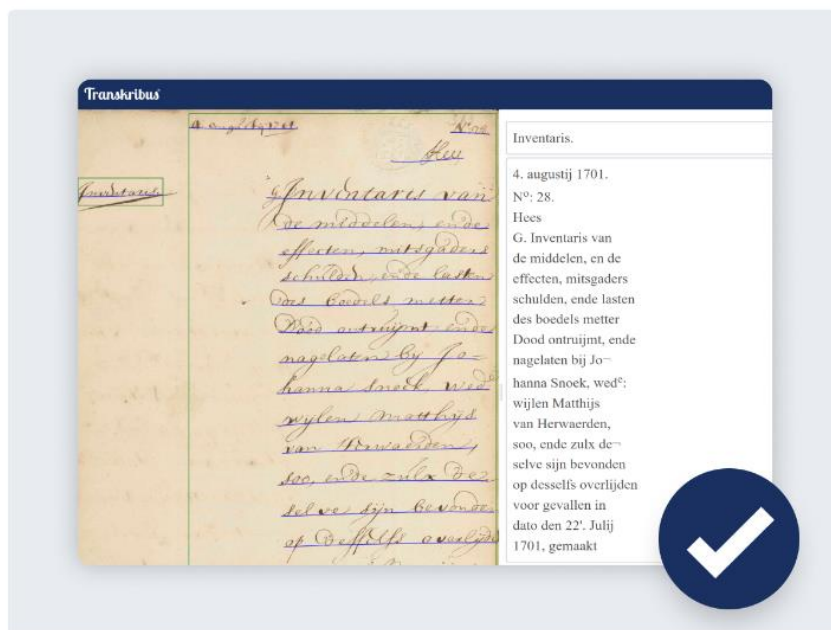 Transkribus
4 augustij 1701
Nº 28
Hees
Inventaris
G Inventaris van
de middelen, ende
effecten, mitsgaders
schulden, ende lasten
des boedels, metter
Dood ontruijmt, ende
nagelaten by Jo=
hanna Snoek, wed.e
wylen Matthys
van Herwaerden,
soo, ende zulx de=
selve sijn bevonden
op desselfs overlijd
Inventaris.
4. augustij 1701.
Nº: 28.
Hees
G. Inventaris van
de middelen, en de
effecten, mitsgaders
schulden, ende lasten
des boedels metter
Dood ontruijmt, ende
nagelaten bij Jo¬
hanna Snoek, wedᵉ:
wijlen Matthijs
van Herwaerden,
soo, ende zulx de¬
selve sijn bevonden
op desselfs overlijden
voor gevallen in
dato den 22'. Julij
1701, gemaakt